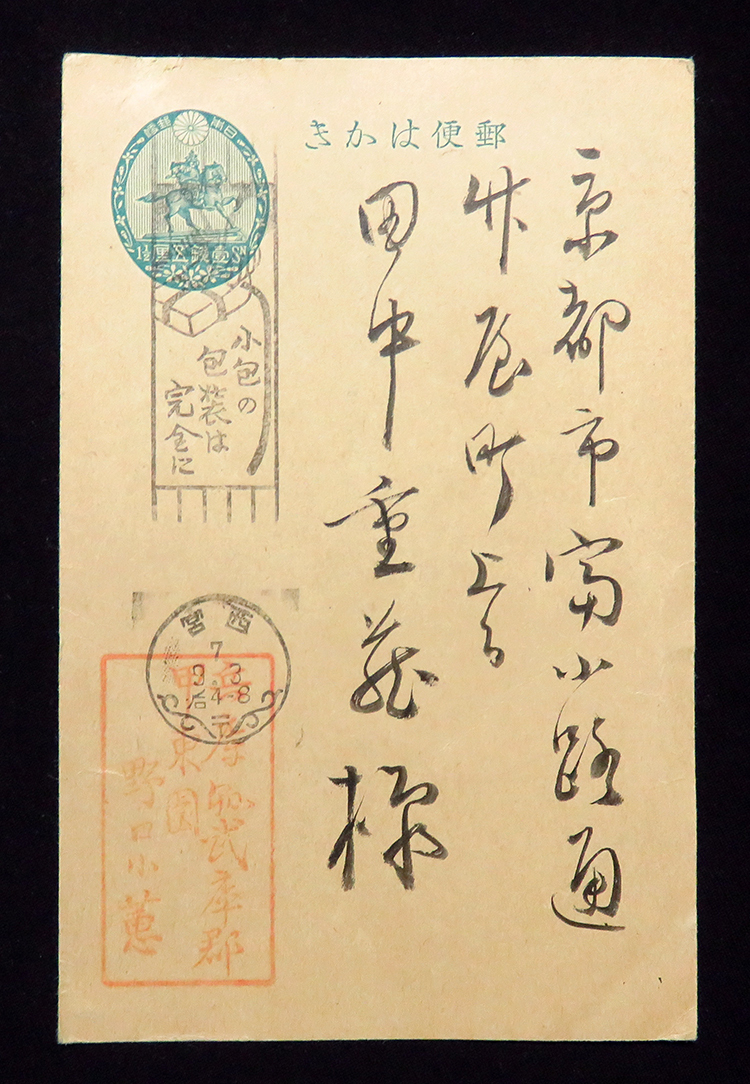 郵便はかき
京都市富小路通
竹屋町上る
田中重蔵様
日本郵便
壹錢五厘
1½ Sn
小包の
包装は
完全に
西宮
7
9.3
后4-8
兵庫縣武庫郡
甲東園
野口小蕙